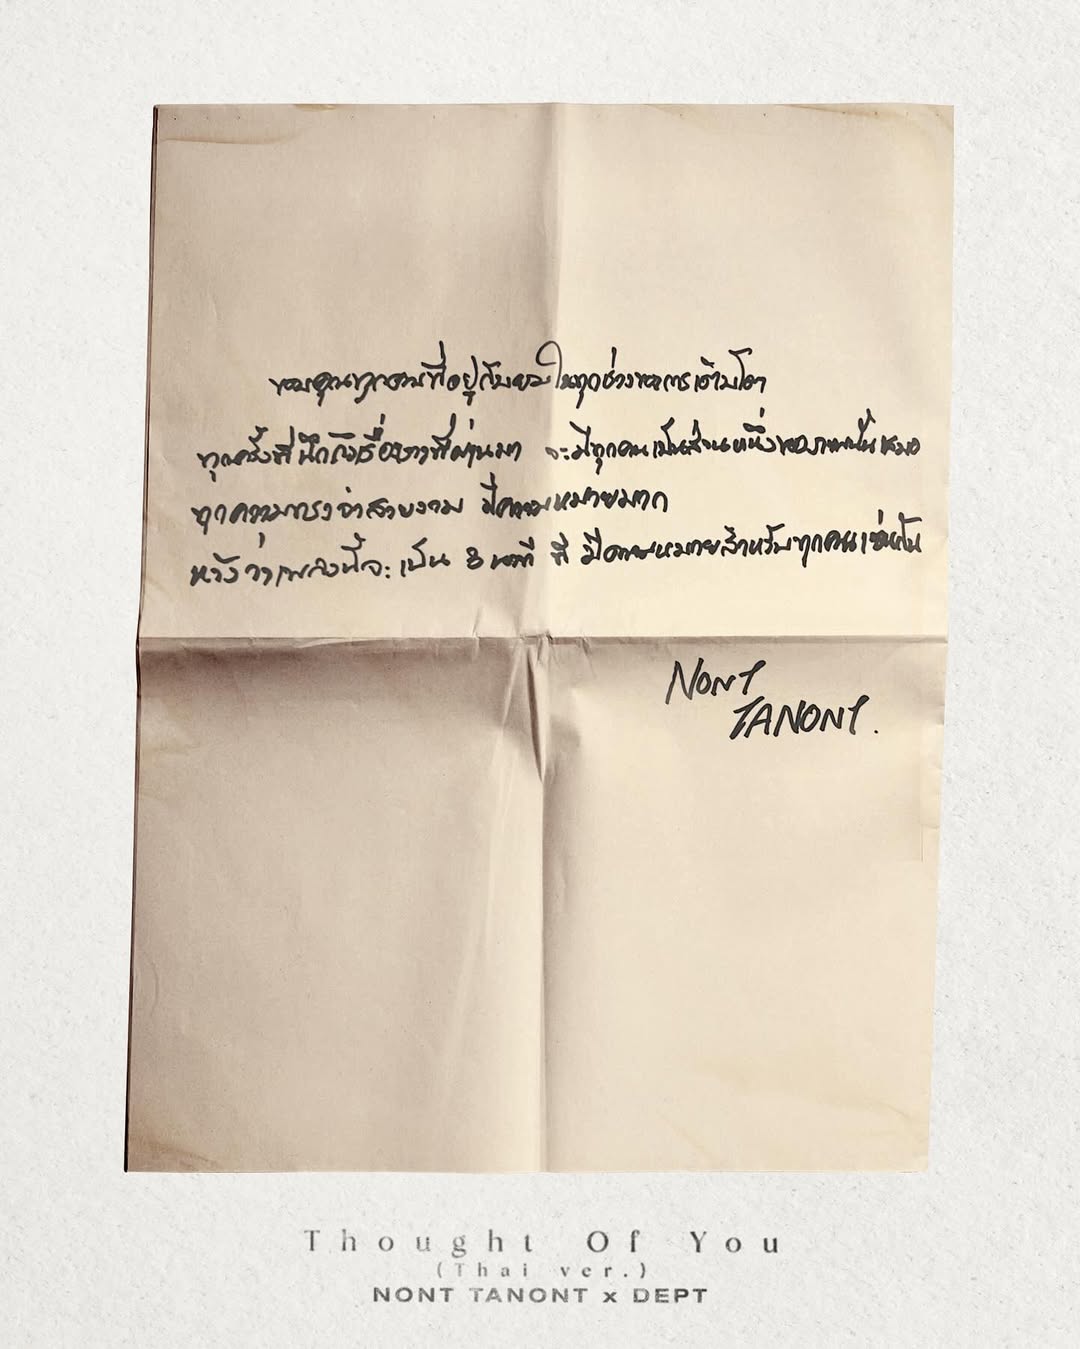 ขอบคุณทุกคนที่อยู่กับผมในทุกช่วงของการเติบโต
ทุกครั้งที่นึกถึงเรื่องราวที่ผ่านมา จะมีทุกคนเป็นส่วนหนึ่งของภาพนั้นเสมอ
ทุกความทรงจำสวยงาม มีความหมายมาก
หวังว่าเพลงนี้จะเป็น 3 นาที ที่ มีความหมายสำหรับทุกคนเช่นกัน
NONT
TANONT.
Thought Of You
(Thai ver.)
NONT TANONT x DEPT